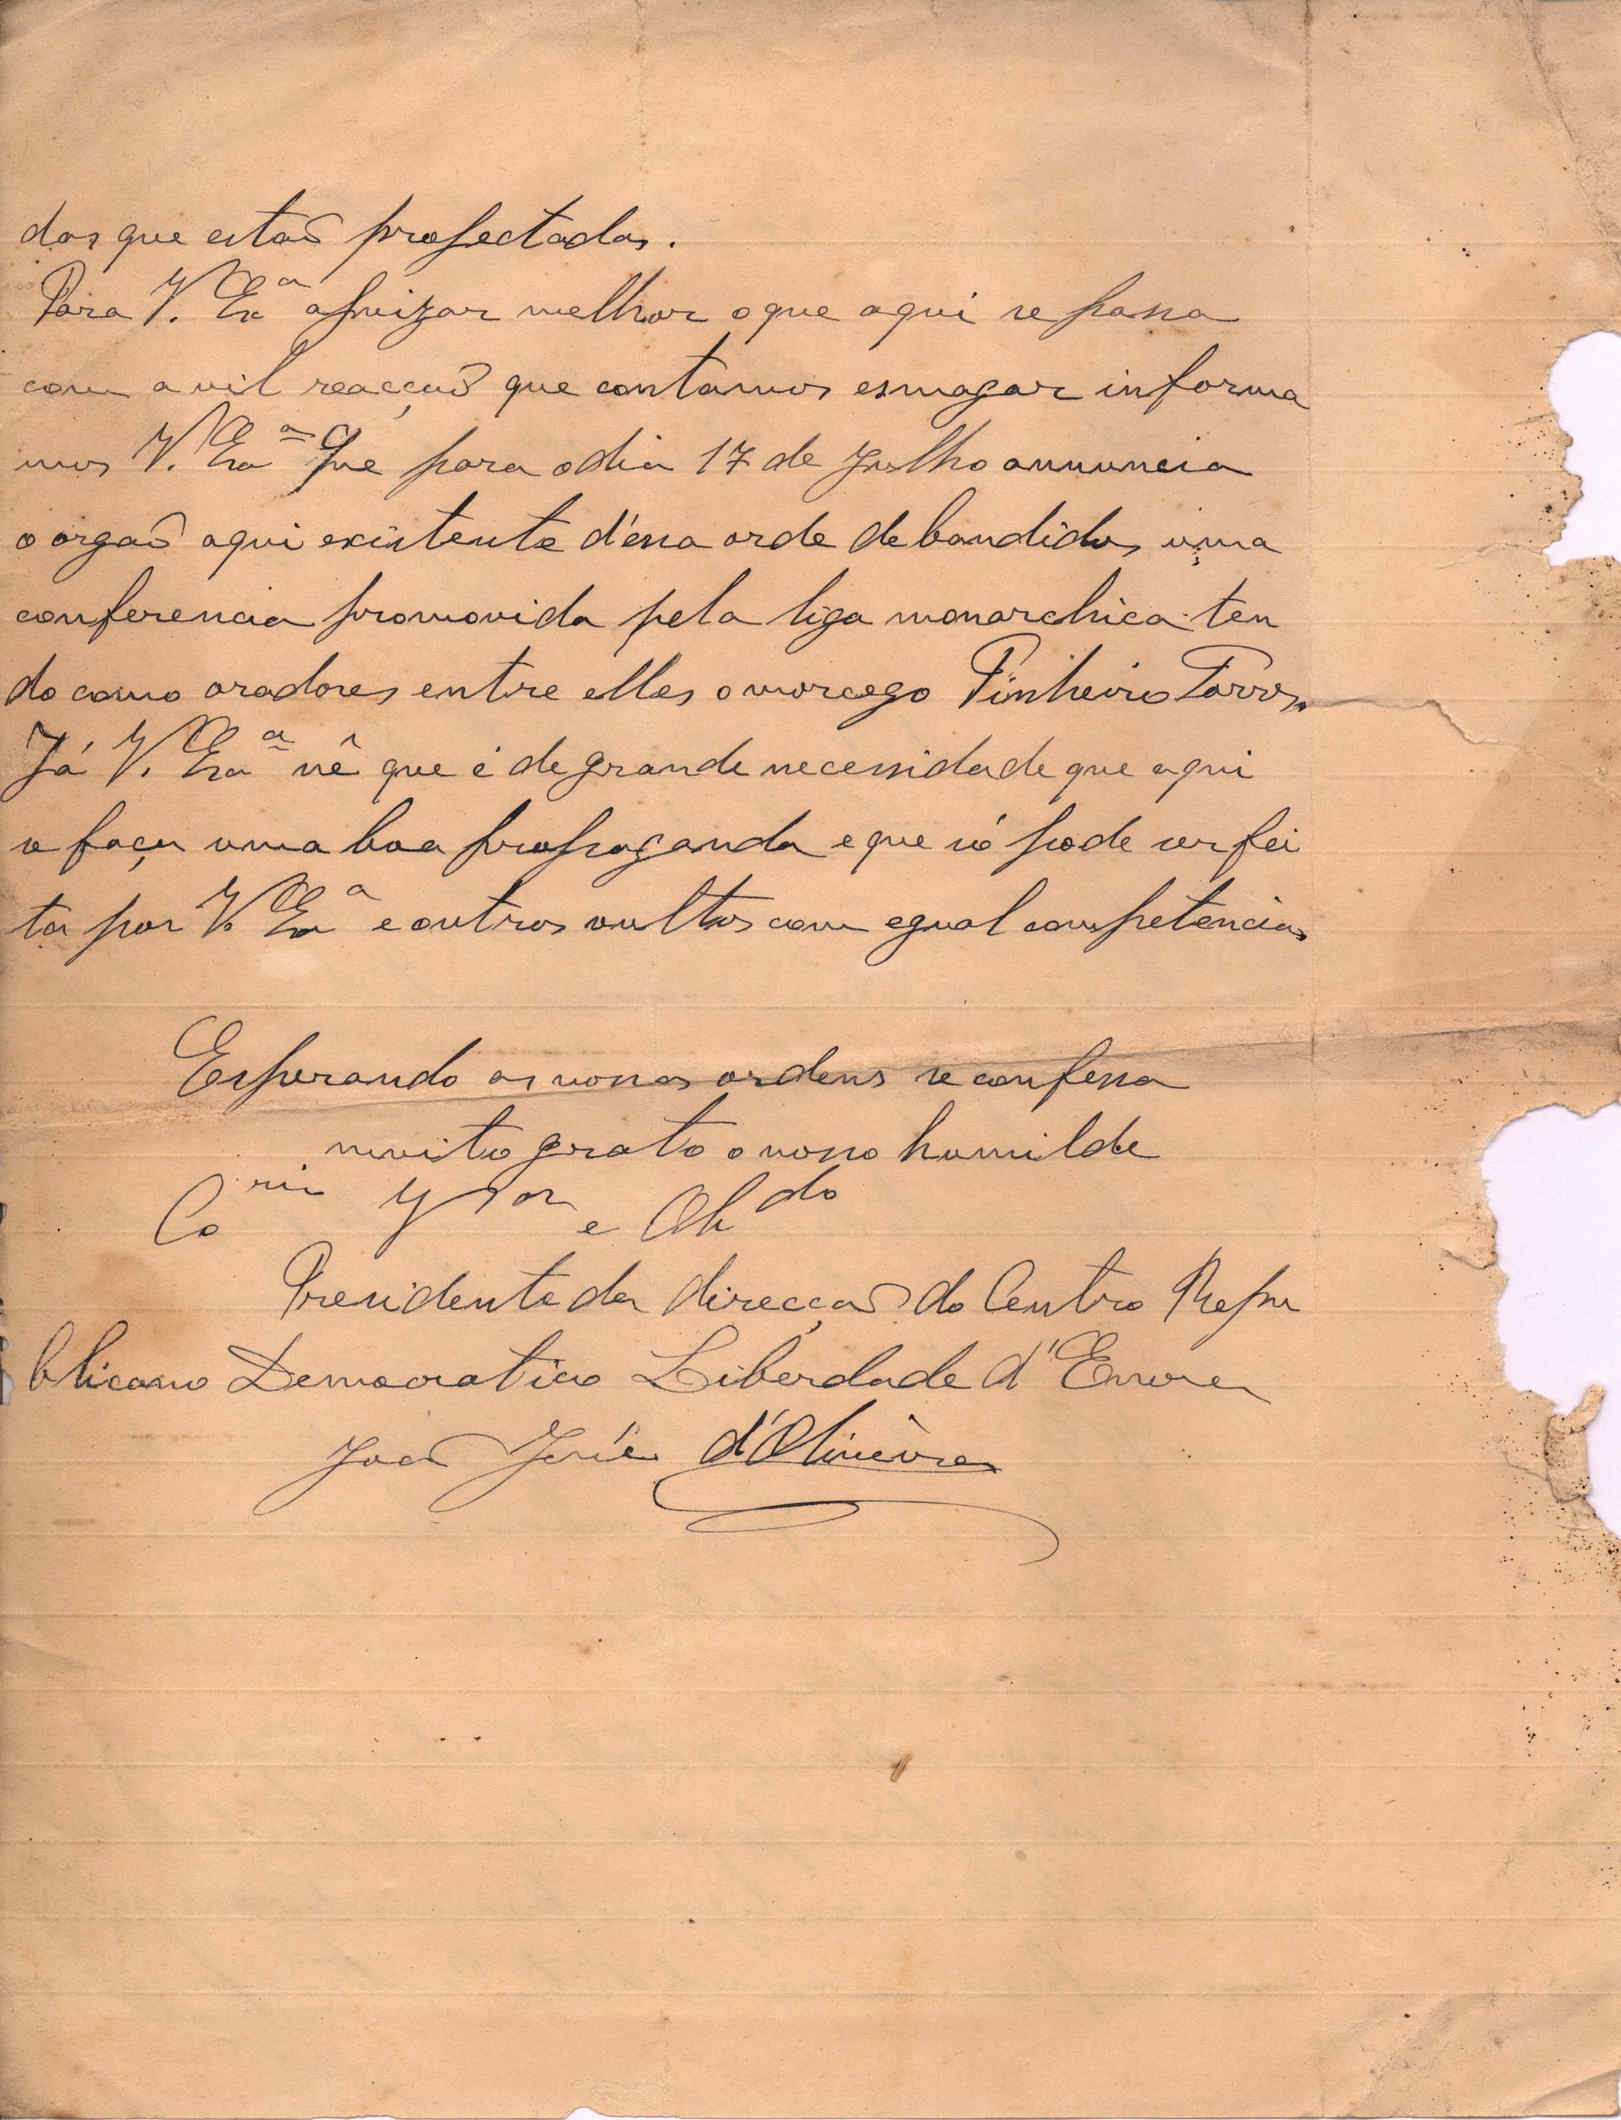 das que estaõ projectadas.
Para V. Exª ajuizar melhor o que aqui se passa
com a vil reacçaõ que contamos esmagar informa
mos V. Exª que para o dia 17 de Julho annuncia
o orgaõ aqui existente d'essa orde de bandidos, uma
conferencia promovida pela liga monarchica ten
do como oradores entre elles o morcego Pinheiro Torres.
Já V. Exª vê que é de grande necessidade que aqui
se faça uma boa propaganda e que só pode ser fei
ta por V. Exª e outros vultos com egual competencia,
Esperando as vossas ordens se confessa
muito grato o vosso humilde
Co e Obdo
Presidente da direcçaõ do Centro Repu
blicano Democratico Liberdade d'
Joaõ José d'Oliveira